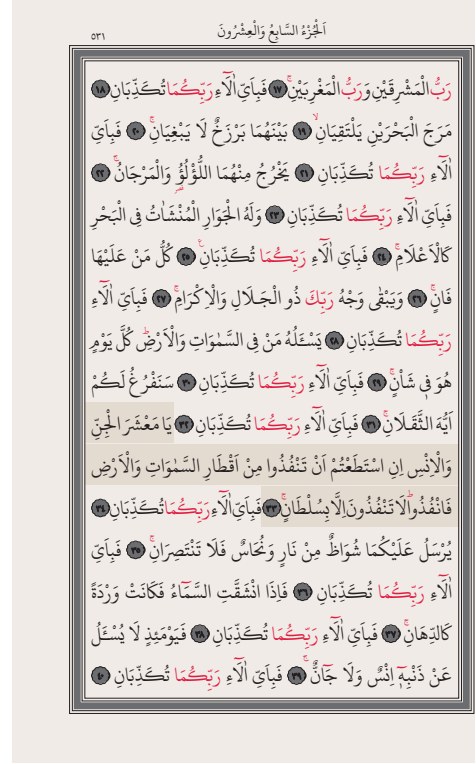 اَلْجُزْءُ السَّابِعُ وَالْعِشْرُونَ
٥٣١
رَبُّ الْمَشْرِقَيْنِ وَرَبُّ الْمَغْرِبَيْنِۚ ﴿١٧﴾ فَبِاَيِّ اٰلَٓاءِ رَبِّكُمَا تُكَذِّبَانِ ﴿١٨﴾
مَرَجَ الْبَحْرَيْنِ يَلْتَقِيَانِۙ ﴿١٩﴾ بَيْنَهُمَا بَرْزَخٌ لَا يَبْغِيَانِۚ ﴿٢٠﴾ فَبِاَيِّ
اٰلَٓاءِ رَبِّكُمَا تُكَذِّبَانِ ﴿٢١﴾ يَخْرُجُ مِنْهُمَا اللُّؤْلُؤُ۬ وَالْمَرْجَانُۚ ﴿٢٢﴾
فَبِاَيِّ اٰلَٓاءِ رَبِّكُمَا تُكَذِّبَانِ ﴿٢٣﴾ وَلَهُ الْجَوَارِ الْمُنْشَاٰتُ فِي الْبَحْرِ
كَالْاَعْلَامِۚ ﴿٢٤﴾ فَبِاَيِّ اٰلَٓاءِ رَبِّكُمَا تُكَذِّبَانِ۟ ﴿٢٥﴾ كُلُّ مَنْ عَلَيْهَا
فَانٍۚ ﴿٢٦﴾ وَيَبْقٰى وَجْهُ رَبِّكَ ذُو الْجَلَالِ وَالْاِكْرَامِۚ ﴿٢٧﴾ فَبِاَيِّ اٰلَٓاءِ
رَبِّكُمَا تُكَذِّبَانِ ﴿٢٨﴾ يَسْـَٔلُهُ مَنْ فِي السَّمٰوَاتِ وَالْاَرْضِۜ كُلَّ يَوْمٍ
هُوَ فِي شَاْنٍۚ ﴿٢٩﴾ فَبِاَيِّ اٰلَٓاءِ رَبِّكُمَا تُكَذِّبَانِ ﴿٣٠﴾ سَنَفْرُغُ لَكُمْ
اَيُّهَ الثَّقَلَانِۚ ﴿٣١﴾ فَبِاَيِّ اٰلَٓاءِ رَبِّكُمَا تُكَذِّبَانِ ﴿٣٢﴾ يَا مَعْشَرَ الْجِنِّ
وَالْاِنْسِ اِنِ اسْتَطَعْتُمْ اَنْ تَنْفُذُوا مِنْ اَقْطَارِ السَّمٰوَاتِ وَالْاَرْضِ
فَانْفُذُواۜ لَا تَنْفُذُونَ اِلَّا بِسُلْطَانٍۚ ﴿٣٣﴾ فَبِاَيِّ اٰلَٓاءِ رَبِّكُمَا تُكَذِّبَانِ ﴿٣٤﴾
يُرْسَلُ عَلَيْكُمَا شُوَاظٌ مِنْ نَارٍ وَنُحَاسٌ فَلَا تَنْتَصِرَانِۚ ﴿٣٥﴾ فَبِاَيِّ
اٰلَٓاءِ رَبِّكُمَا تُكَذِّبَانِ ﴿٣٦﴾ فَاِذَا انْشَقَّتِ السَّمَٓاءُ فَكَانَتْ وَرْدَةً
كَالدِّهَانِۚ ﴿٣٧﴾ فَبِاَيِّ اٰلَٓاءِ رَبِّكُمَا تُكَذِّبَانِ ﴿٣٨﴾ فَيَوْمَئِذٍ لَا يُسْـَٔلُ
عَنْ ذَنْبِهٖٓ اِنْسٌ وَلَا جَٓانٌّۚ ﴿٣٩﴾ فَبِاَيِّ اٰلَٓاءِ رَبِّكُمَا تُكَذِّبَانِ ﴿٤٠﴾